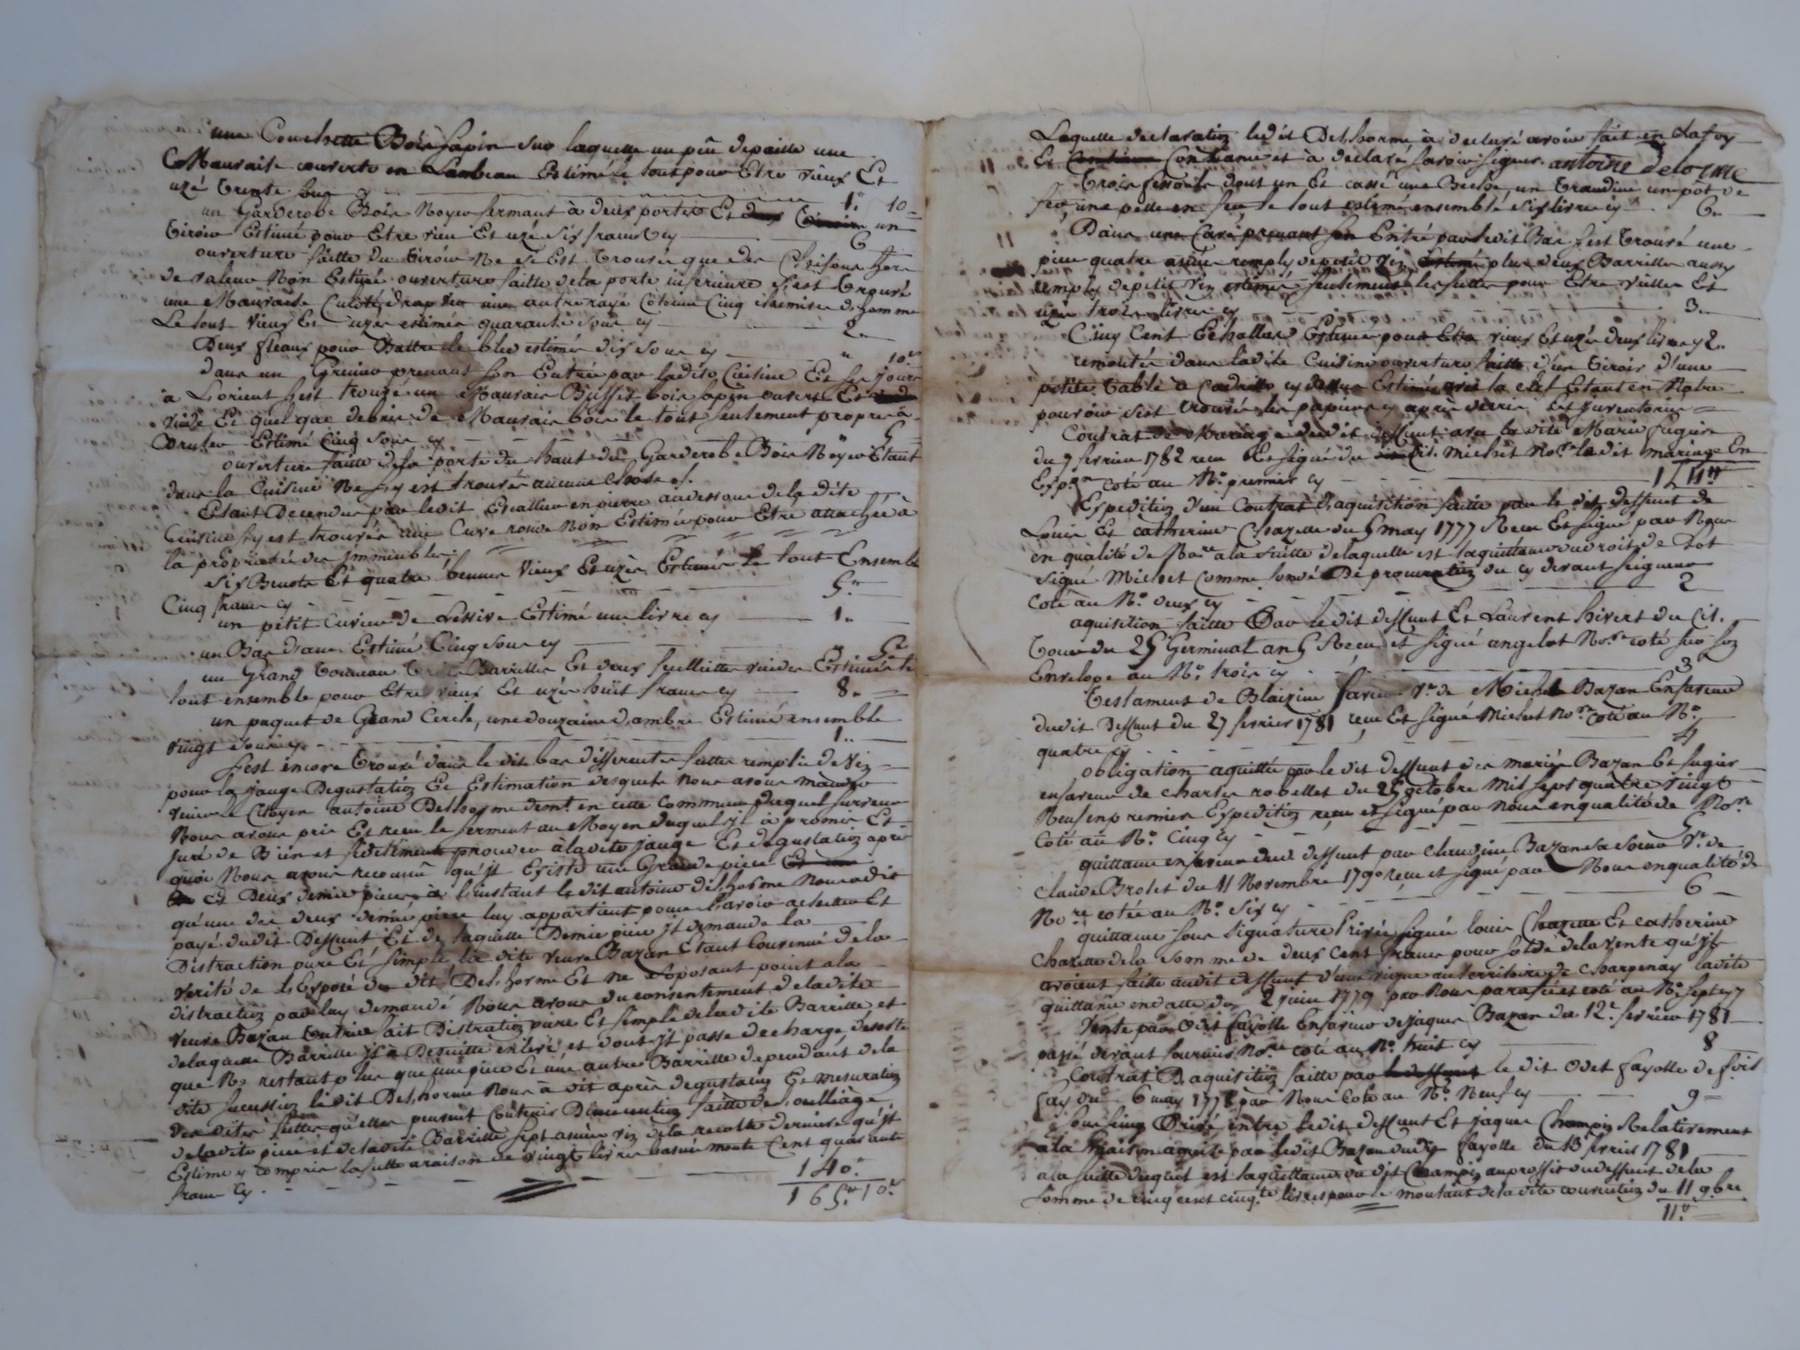 une Couchette Bois Sapin sur laquelle un peu de paille une
Mauvaise couverte en Lambeau Estimé le tout pour Etre vieux Et
uzé trente sous 1" 10
un Garderobe Bois Noyer fermant à deux portes Et un
tiroir Estimé pour Etre vieu Et uzé six francs cy 6
ouverture faitte du tiroir Ne s'i Est trouvé que des Chifons hors
de valeur Non Estimé ouverture faitte de la porte inferieure s'est trouvé
une Mauvaise Culotte drap une autre rayé Cotonne Cinq chemises d'homme
Le tout vieux Et uzés estimés quarante sous cy 2
Deux fleaux pour Battre le bled estimé dix sous cy " 10s
dans un Grenier prenant son Entrée par ladite Cuisine Et ses jours
à Lorient s'est trouvé un Mauvais Buffet bois sapin ouvert Et
vide Et quelque debris de Mauvais bois le tout seulement propre à
Bruler Estimé Cinq sous cy 5
ouverture faitte de la porte du haut du Garderobe Bois Noyer Etant
dans la Cuisine Ne s'y est trouvés aucune Choses.
Etant Decendus par ledit Escallier en pierre au dessous de la dite
Cuisine s'y est trouvés une Cuve ronde Non Estimée pour Etre attachée à
la proprietée des immeubles
Six Benots Et quatre bennes vieux Et uzés Estimés Le tout Ensemble
Cinq francs cy 5"
un petit Cuvier de Lessive Estimé une livre cy 1"
un Bas d'ane Estimé Cinq sous cy 5s
un Grand tonneau trois Barrilles Et deux feuillettes vuides Estimés le
tout ensemble pour Etre vieux Et uzés huit francs cy 8"
un paquet de Grand Cercle, une douzaine d'ambre Estimé ensemble
vingt sous cy 1"
S'est encore trouvé dans le dit bas differentes futtes remplie de vin
pour la jauge Degustation Et Estimation desquels Nous avons mandés
venir le Citoyen antoine Delhorme demt. en cette Commune duquel survenu
Nous avons pris Et recu le serment au Moyen duquel il à promis Et
juré de Bien et fidellement proceder à ladite jauge Et degustation après
quoi Nous avons reconnû qu'il Existe une Grande piece
Et Deux demie pieces à l'instant le dit antoine delhorme Nous a dit
qu'une des deux demie piece luy appartient pour l'avoir achettée Et
payé dudit Deffunt Et de laquelle Demie piece il demande la
Distraction pure Et simple, la dite veuve Bazan Etant Convenue de la
verité de l'Exposé du dit Delhorme Et ne s'oposant point a la
distraction par luy demandé Nous avons du consentement de ladite
veuve Bazan Tutrice fait Distraction pure Et simple de ladite Barrille et
de laquelle Barrille il à Desuitte enlevé, et dont il passe decharge, desorte
que Ne restant plus que une piece Et une autre Barrille dependant de la
dite succession le dit Delhorme Nous à dit après degustation Et mesuration
des dites futtes qu'elles peuvent Contenir Diminution faitte de l'ouilliage
de la dite piece et de la dite Barrille sept anées vin de la recolte derniere qu'il
Estime y compris la futte a raison de vingt livres l'asnée monte Cent quarante
francs Cy 140"
165" 10s
Laquelle declaration ledit Delhorme à declaré avoir fait en La foy
Et Consience et à declaré savoir signer antoine delorme
trois fessoirs dont un Et cassé une Beche, un trandine un pot de
fer, une pelle en fer, le tout estimé ensemble six livres cy 6"
Dans une Cave prenant son Entré par ledit Bas s'est trouvé une
piece quatre anées remply de petit vin plus deux Barrilles aussy
remply de petit vin estimés seulement les futtes pour Etre vielles Et
uzés trois livres cy 3
Cinq Cent Echallas Estimé pour Etre vieux Et uzés deux livres cy 2"
remontés dans ladite Cuisine ouverture faitte d'un tiroir d'une
petite table à Cadette cy dessus Estimé avec la clef Etant en Notre
pouvoir s'est trouvés les papiers cy après decris Et Inventoriés
Contrat de Mariage dudit deffunt avec la dite Marie Fugier
du 7 fevrier 1782 recu Et signé du Cit. Michet Nore. ledit mariage En
Expon. coté au No. premier cy 1 " 11"
Expedition d'un Contrat D'aquisition faitte par le dit deffunt de
Louis Et catherine Chazette du 5 may 1777 Recu Et signé par Nous
en qualité de Nore. a la suitte de laquelle est la quittance du droits de Lot
signé Michet comme fondé De procuration du cy devant seigneur
Coté au No. deux cy 2
aquisition faitte Par le dit deffunt Et Laurent hivert du Cit.
du 25 Germinal an 5 Recu et signé angelot Nore. coté sur son
Envelope au No. trois cy 3
Testament de Blaizine ve. de Michel Bazan En faveur
dudit Deffunt du 27 fevrier 1781 recu Et signé Michet Nore. coté au No.
quatre cy 4
obligation aquittée par le dit deffunt des mariés Bazan Et fugier
en faveur de Charles robellet du 25 octobre Mil sept quatre vingt
Neuf en premier Expedition recu et signé par Nous en qualité de Nore.
Coté au No. Cinq cy 5
quittance en faveur dud. deffunt par Claudine Bazan sa soeur Ve. de
Claude Brolet du 11 Novembre 1790 recu et signé par Nous en qualité de
Nore. cotée au No. Six cy 6
quittance sous signature Privée signée louis Chazette Et catherine
Chazette de la somme de deux Cent francs pour solde de la vente qu'ils
avoient faitte audit deffunt d'une vigne au territoire de Charpenay ladite
quittance en datte du 2 juin 1779 par Nous parafée et coté au No. Sept cy 7
Vente par Odet fayolle En faveur de jaques Bazan du 12e. fevrier 1781
passé devant fournier Nore. coté au No. huit cy 8
Contrat D'aquisition faitte par le dit Odet fayolle de
du 6 may 1778 par Nous Coté au No. Neuf cy 9
Sous seing Privé entre ledit deffunt Et jaques Champin Relativement
a la Maison aquise par ledit Bazan dudit fayolle du 13 fevrier 1781
a la suitte duquel est la quittance du dit Champin au proffit du deffunt de la
somme de cinq cent cinqte. livres pour le montant de la dite convention du 11 9bre
11"